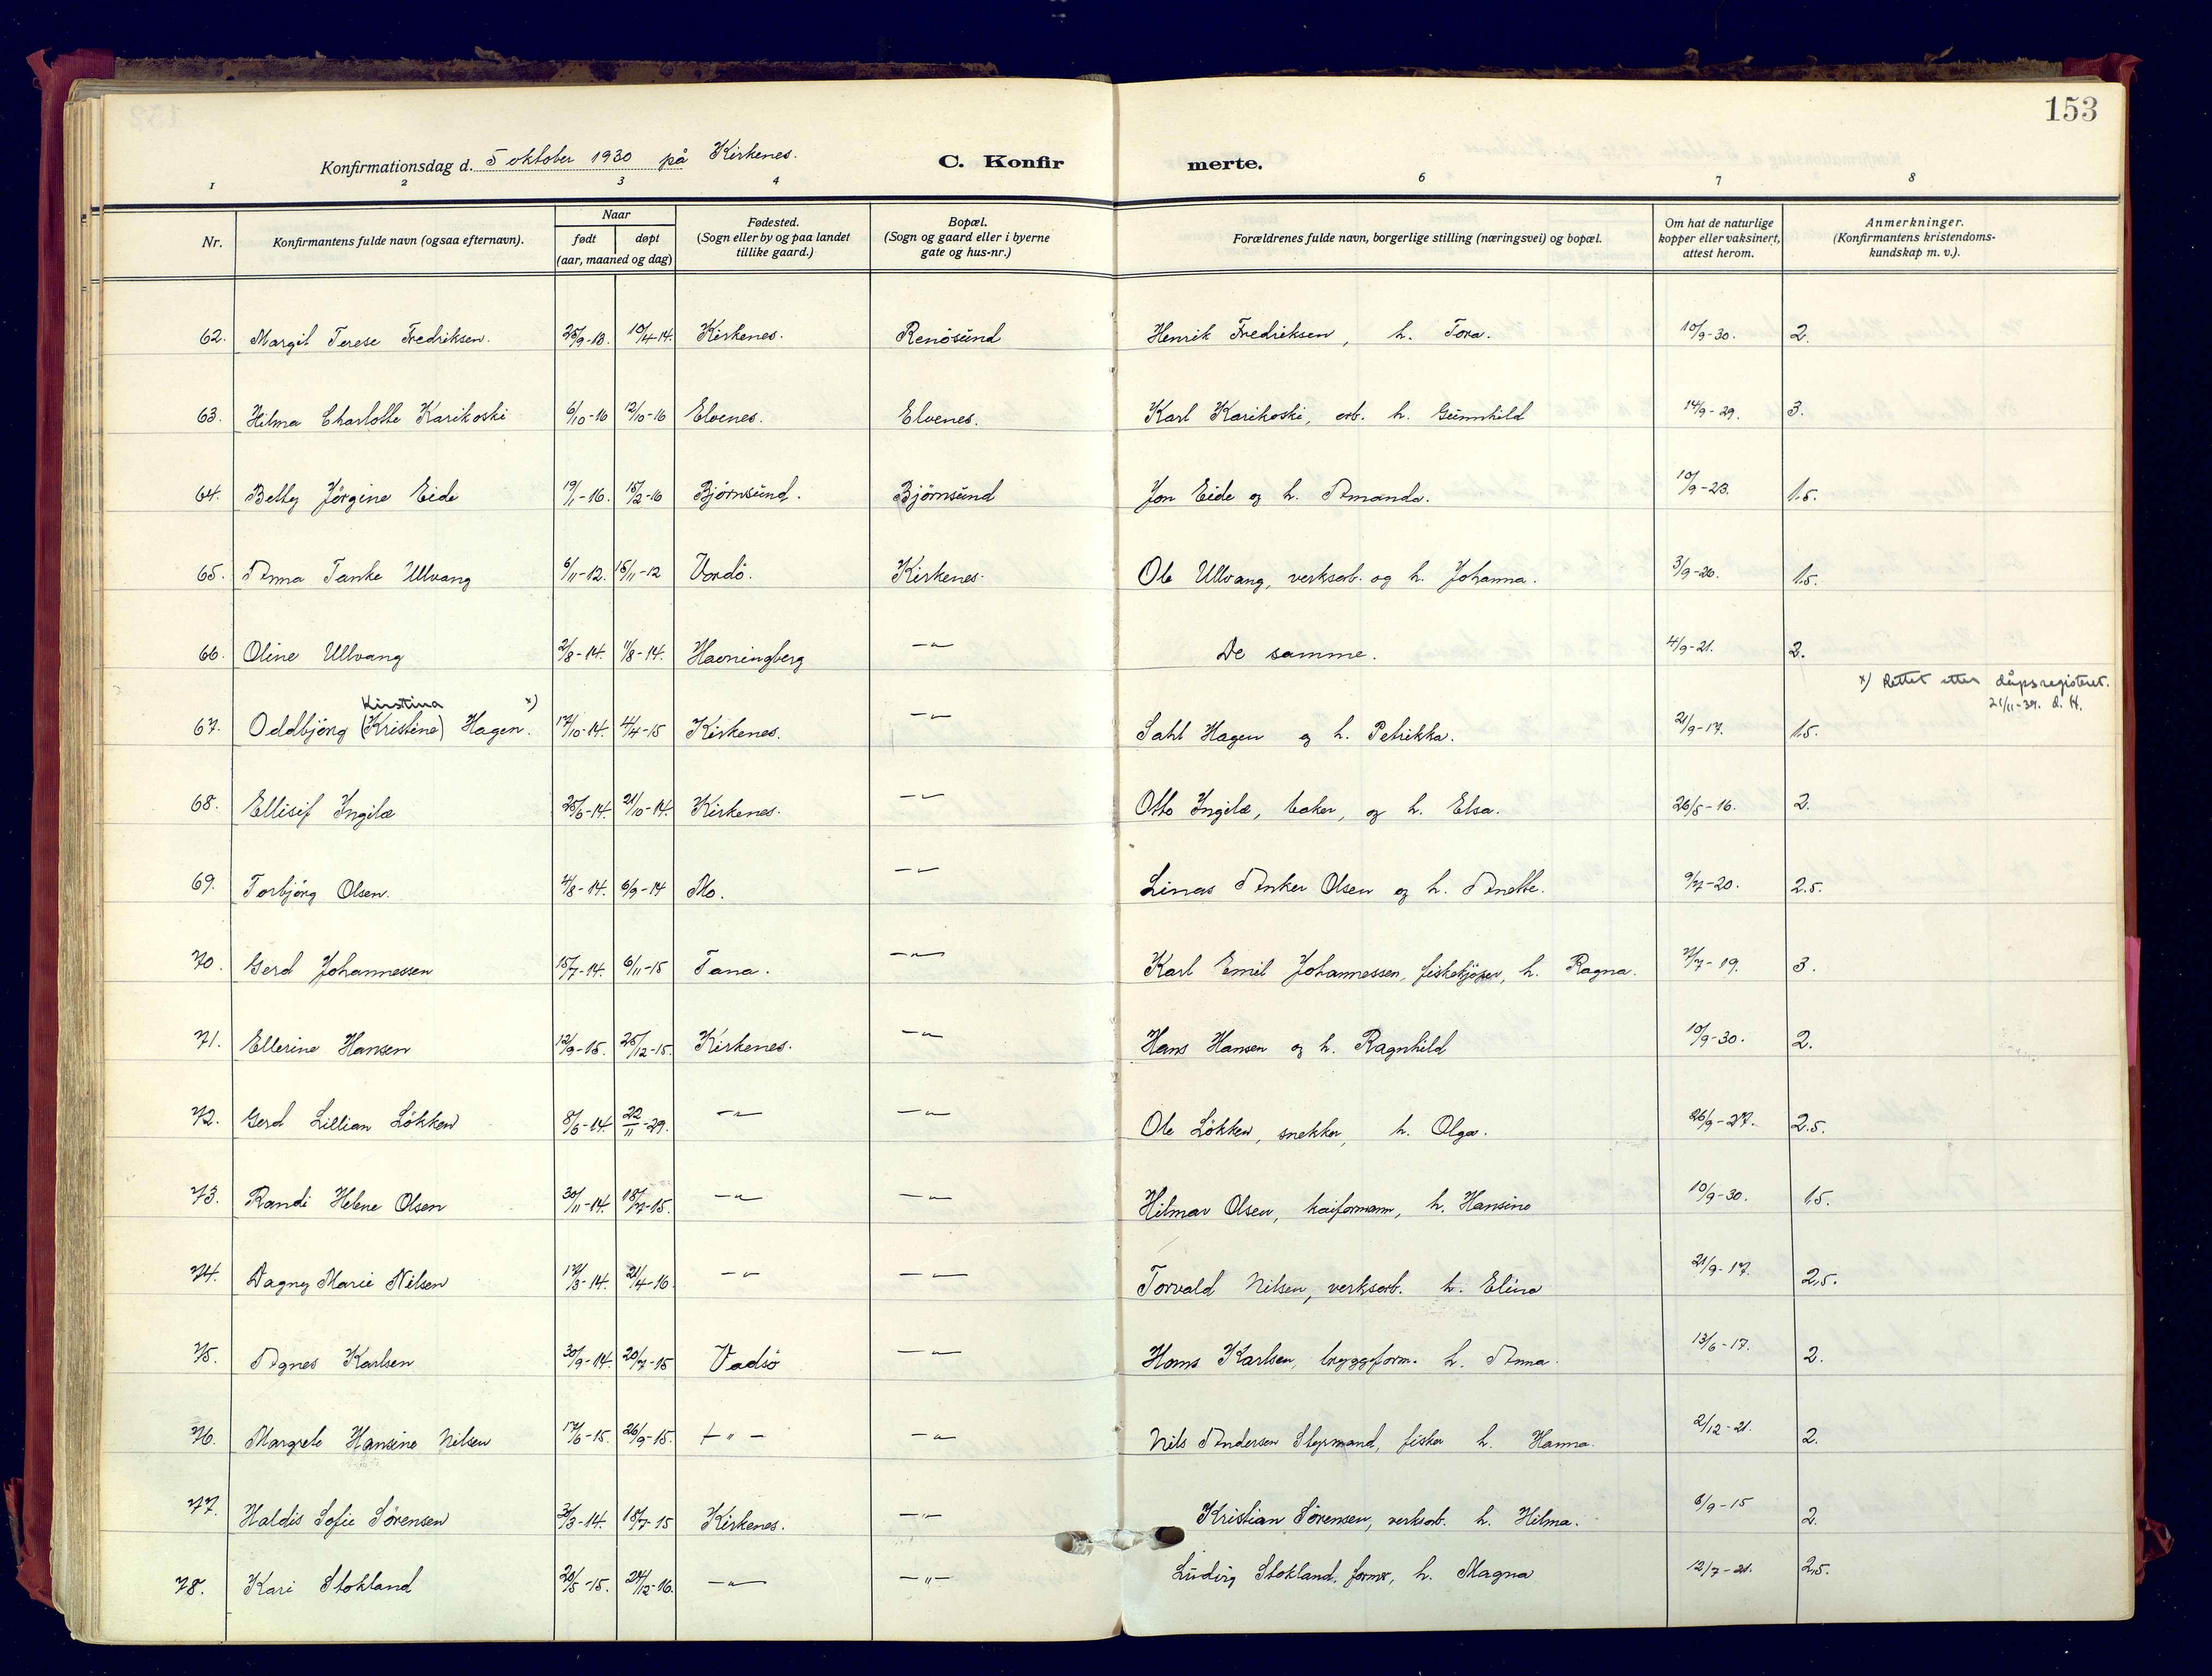 153
Konfirmationsdag d. 5 oktober 1930 på Kirkenes. C. Konfirmerte.
1 2 3 4 6 7 8
Nr. Konfirmantens fulde navn (ogsaa efternavn). Naar født døpt (aar, maaned og dag) Fødested. (Sogn eller by og paa landet tillike gaard.) Bopæl. (Sogn og gaard eller i byerne gate og hus-nr.) Forældrenes fulde navn, borgerlige stilling (næringsvei) og bopæl. Om hat de naturlige kopper eller vaksinert, attest herom. Anmerkninger. (Konfirmantens kristendoms-kundskap m. v.).
62. Margit Terese Fredriksen. 25/9-13 10/4-14. Kirkenes. Renösund Henrik Fredriksen, h. Tora. 10/9-30. 2.
63. Hilma Charlotte Karikoski 6/10-16 12/10-16 Elvenes. Elvenes. Karl Karikoski, arb. h. Gunnhild 14/9-29. 3.
64. Betty Jörgine Eide 19/1-16. 15/2-16 Björnsund. Björnsund Jon Eide og h. Amanda. 10/9-23. 1.5.
65. Anna Tanke Ullvang 6/11-12. 15/11-12 Vardö. Kirkenes. Ole Ullvang, verksarb. og h. Johanna. 3/9-20. 1.5.
66. Oline Ullvang 2/8-14. 11/8-14. Havningberg -"- De samme. 4/9-21. 2.
x) Rettet etter dåpsregisteret.
21/11-39. d. H.
Kirstina x)
67. Oddbjörg (Kristine) Hagen. 17/10-14. 4/4-15 Kirkenes. -"- Sahl Hagen og h. Petrikka. 21/9-17. 1.5.
68. Ellisif Ingilæ 25/6-14. 21/10-14. Kirkenes. -"- Otto Ingilæ, baker, og h. Elsa. 26/5-16. 2.
69. Torbjörg Olsen. 4/8-14. 6/9-14 Mo. -"- Linas Anker Olsen og h. Anette. 9/7-20. 2.5.
70. Gerd Johannessen 15/7-14. 6/11-15 Tana. -"- Karl Emil Johannessen, fiskekjöper, h. Ragna. /7-19. 3.
71. Ellerine Hansen 12/9-15. 25/12-15. Kirkenes. -"- Hans Hansen og h. Ragnhild 10/9-30. 2.
72. Gerd Lillian Lökken 8/6-14. 22/11-29. -"- -"- Ole Lökken, snekker, h. Olga. 26/9-27. 2.5.
73. Randi Helene Olsen 30/11-14. 18/7-15. -"- -"- Hilmar Olsen, kaiformann, h. Hansine 10/9-30. 1.5.
74. Dagny Marie Nilsen 17/3-14. 21/4-16. -"- -"- Torvald Nilsen, verksarb. h. Elina 21/9-17. 2,5.
75. Agnes Karlsen 30/9-14. 20/7-15 Vadsö -"- Hans Karlsen, bryggeform. h. Anna. 13/6-17. 2.
76. Margrete Hansine Nilsen 17/6-15. 26/9-15. -"- -"- Nils Andersen Styrmand, fisker h. Hanna. 2/12-21. 2.
77. Haldis Sofie Sörensen /3-14. 18/7-15 Kirkenes. -"- Kristian Sörensen, verksarb. h. Hilma. 6/9-15 2.
78. Kari Stokland 20/5-15. 24/12-16. -"- -"- Ludvig Stokland, former, h. Magna 12/7-21. 2,5.